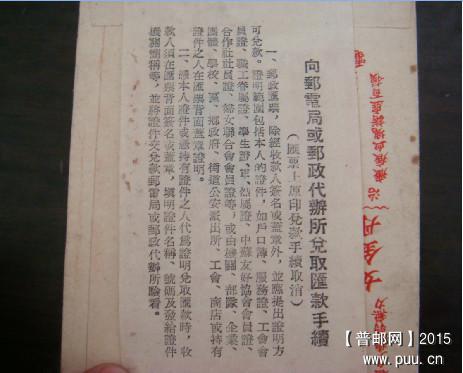 向郵電局或郵政代辦所兌取匯款手續
(匯票上原印兌款手續取消)
一、郵政匯票,除經收款人簽名或蓋章外,並應提出證明方
可兌款。證明範圍包括本人的證件,如戶口簿、服務證、工會會
員證、職工眷屬證、學生證、軍、烈屬證、中蘇友好協會會員證、
合作社社員證、婦女聯合會會員證等,或由機關、部隊、企業、
團體、學校、區、鄉政府、街道公安派出所、工會、商店或持有
證件之人在匯票背面蓋章證明。
二、憑本人證件或憑持有證件之人代爲證明兌取匯款時,收
款人須在匯票背面簽名或蓋章,填明證件名稱、號碼及發給證件
機關名稱等,並將證件交兌款郵電局或郵政代辦所驗看。
女金丹
治
【普邮网】2015
www.puu.cn